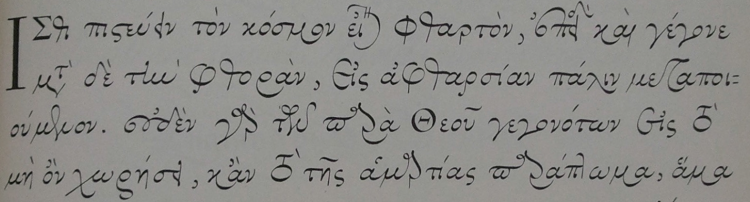 ΙΣθι πιστεύειν τὸν κόσμον εἶναι φθαρτὸν, καὶ γέγονε
μετὰ δὲ τὴν φθορὰν, εἰς ἀφθαρσίαν πάλιν μεταποι=
ούμενον. οὐδὲν γὰρ τῶν παρὰ Θεοῦ γεγονότων εἰς τὸ
μὴ ὂν χωρήσει, κἂν τὸ τῆς ἁμαρτίας παράπτωμα, ἅμα